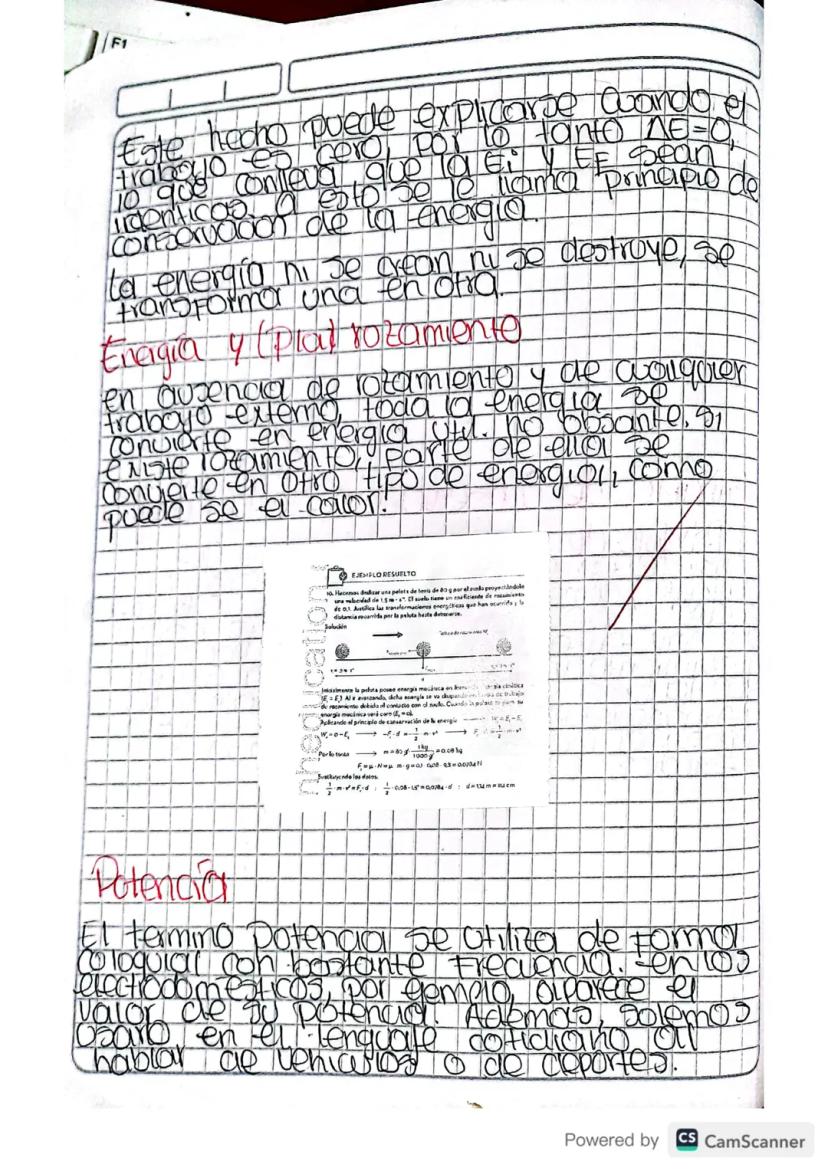 F1
Este hecho puede explicarse cuando el
trabajo es cero, por lo tanto ΔE=0,
lo que conlleva que la Ei y EF sean
identicos. a esto se le llama principio de
conservacion de la energia.
la energía ni se crean ni se destruye, se
transforma una en otra.
Energía y (Pla) rozamiento
en ausencia de rozamiento y de cualquier
trabajo externo, toda la energía se
convierte en energía util. no obsante, si
existe rozamiento, parte de ella se
convierte en otro tipo de energía, como
puede se el calor.
EJEMPLO RESUELTO
10. Hacemos deslizar una pelota de tenis de 80 g por el suelo proyectándole
una velocidad de 1,5 m · s⁻¹. El suelo tiene un coeficiente de rozamiento
de 0,1. Justifica las transformaciones energéticas que han ocurrido y la
distancia recorrida por la pelota hasta detenerse.
Solución
Inicialmente la pelota posee energía mecánica en forma de energía cinética
Al ir avanzando, dicha energía se va disipando en forma de trabajo
de rozamiento debido al contacto con el suelo. Cuando la pelota se pare su
energía mecánica será cero
Aplicando el principio de conservación de la energía
Por lo tanto m = 80 g · 1 kg / 1000 g = 0,08 kg
Sustituyendo los datos:
1/2 · m · v² = Fr · d ; 1/2 · 0,08 · 1,5² = 0,0784 · d ;
Potencia
El termino Potencia se utiliza de forma
coloquial con bastante frecuencia. en los
electrodomésticos, por ejemplo, aparece el
valor de su potencia. Además, solemos
usaro en el lenguaje cotidiano al
hablar de vehiculos o de deportes.
Powered by CS CamScanner